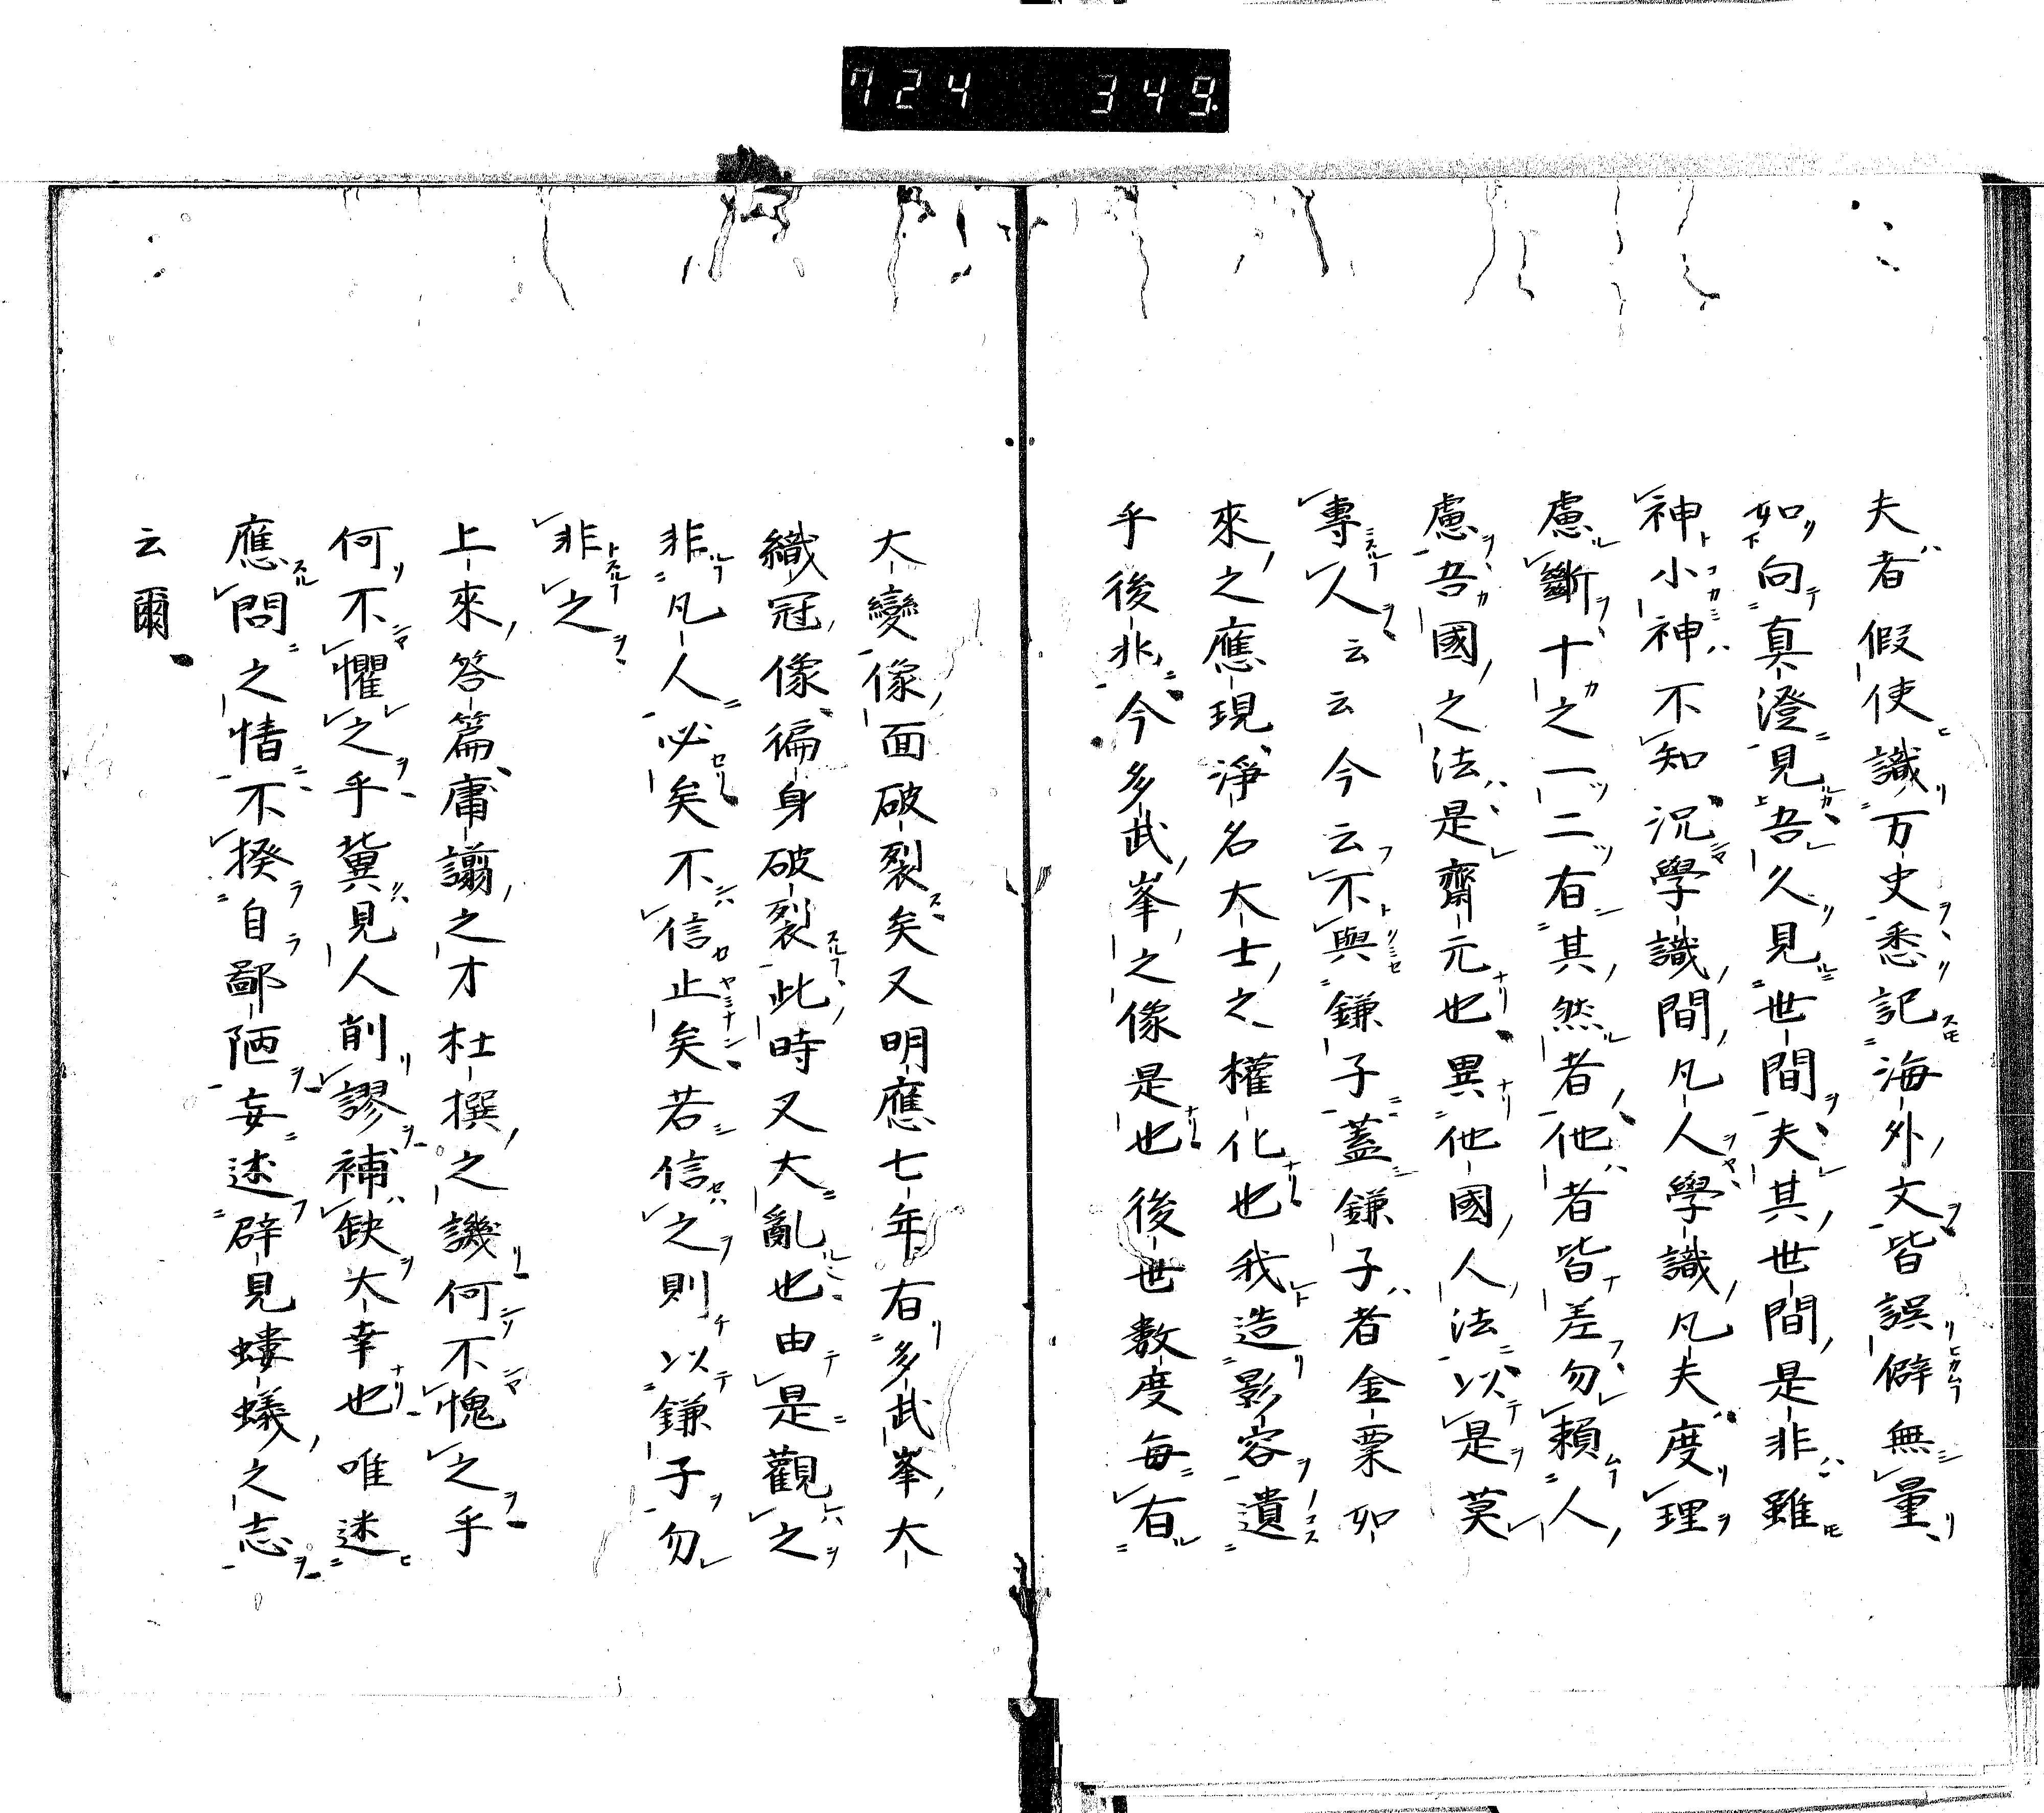 724 349
夫者假使識万史悉記海外文皆誤僻無量
如向真澄見吾久見世間夫其世間是非雖
神小神不知況學識間凡人學識凡夫度理
慮斷十之一二有其然者他者皆差勿賴人
慮吾國之法是齋元也異他國人法以是莫
專人云云今云不與鎌子蓋鎌子者金粟如
來之應現淨名大士之權化也我造影容遺
乎後非今多武峯之像是也後世数度每有
大變像面破裂矣又明應七年右多武峯大
織冠像徧身破裂此時又大亂也由是觀之
非凡人必矣不信止矣若信之則以鎌子勿
非之
上來答篇庸譾之才杜撰之譏何不愧之乎
何不懼之乎冀見人削謬補缺大幸也唯述
應問之情不揆自鄙陋妄述辟見螻蟻之志
云爾